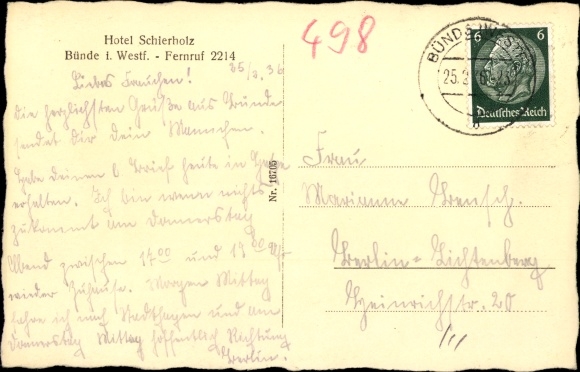 Hotel Schierholz
Bünde i. Westf. - Fernruf 2214
498
25/3.36
Liebes Frauchen!
Die herzlichsten Grüße aus Bünde
sendet Dir Dein Männchen.
Habe deinen l. Brief heute in
erhalten. Ich bin wenn nichts
zukommt am Donnerstag
Abend zwischen 17 00 und 19 00 Uhr
wieder Zuhause. Morgen Mittag
fahre ich nach Stadthagen und am
Donnerstag Mittag hoffentlich Richtung
Berlin.
Nr. 16705
BÜNDE (WESTF)
6 6
Deutsches Reich
Frau
Marianne
Berlin-Lichtenberg
Heinrichstr. 20